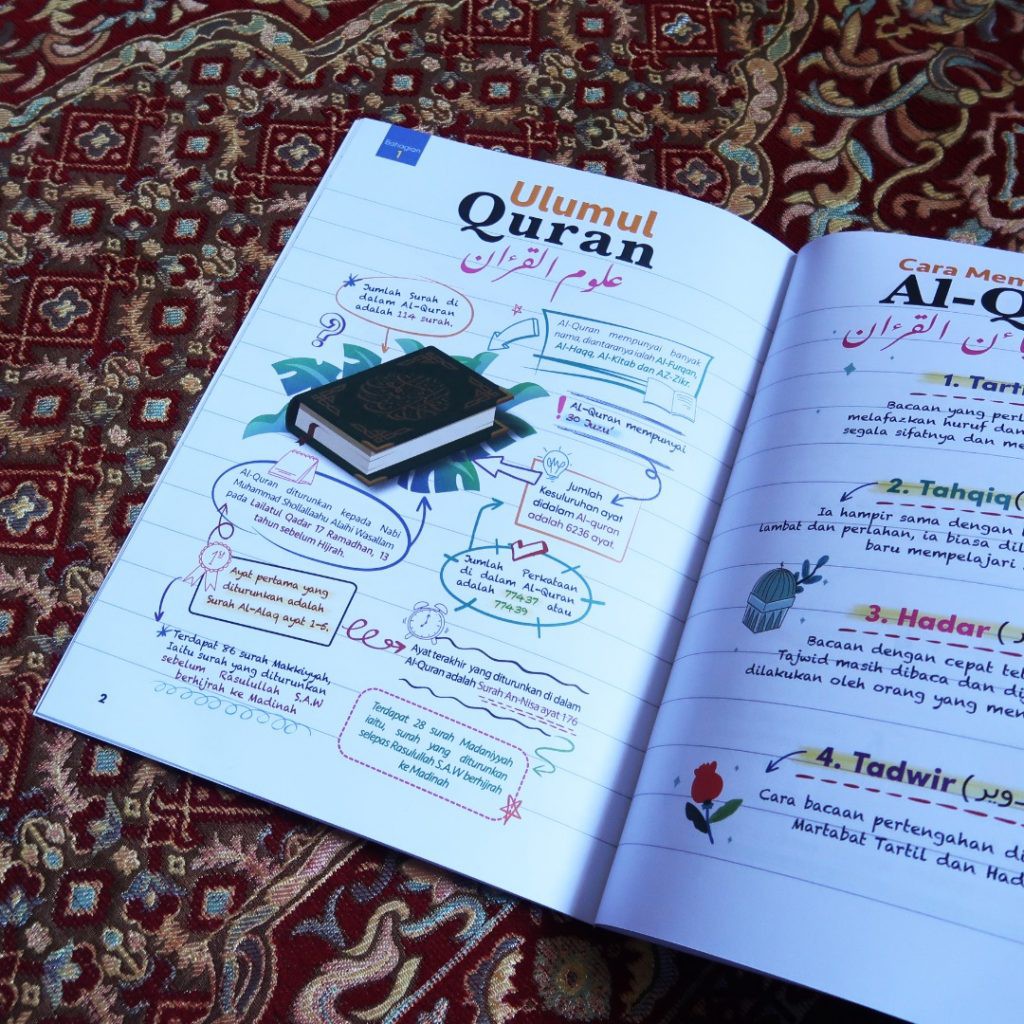 Bahagian
1
Ulumul
Quran
علوم القرءان
Jumlah Surah di
dalam Al-Quran
adalah 114 surah.
Al-Quran mempunyai banyak
nama, diantaranya ialah Al-Furqan,
Al-Haqq, Al-Kitab dan AZ-Zikr.
Al-Quran mempunyai
30 Juzu'
Jumlah
Kesuluruhan ayat
didalam Al-quran
adalah 6236 ayat.
Al-Quran diturunkan kepada Nabi
Muhammad Shollallaahu Alaihi Wasallam
pada Lailatul Qadar 17 Ramadhan, 13
tahun sebelum Hijrah.
Jumlah Perkataan
di dalam Al-Quran
adalah 77437 atau
77439
1st
Ayat pertama yang
diturunkan adalah
Surah Al-Alaq ayat 1-5.
Ayat terakhir yang diturunkan di dalam
Al-Quran adalah Surah An-Nisa ayat 176
Terdapat 86 surah Makkiyyah,
Iaitu surah yang diturunkan
sebelum Rasulullah S.A.W
berhijrah ke Madinah
Terdapat 28 surah Madaniyyah
iaitu, surah yang diturunkan
selepas Rasulullah S.A.W berhijrah
ke Madinah
2
Cara Mem
Al-Q
القرءان
1. Tarti
Bacaan yang perl
melafazkan huruf dan
segala sifatnya dan me
2. Tahqiq (
Ia hampir sama dengan
lambat dan perlahan, ia biasa dil
baru mempelajari
3. Hadar (
Bacaan dengan cepat tet
Tajwid masih dibaca dan di
dilakukan oleh orang yang men
4. Tadwir (دوير
Cara bacaan pertengahan di
Martabat Tartil dan Had